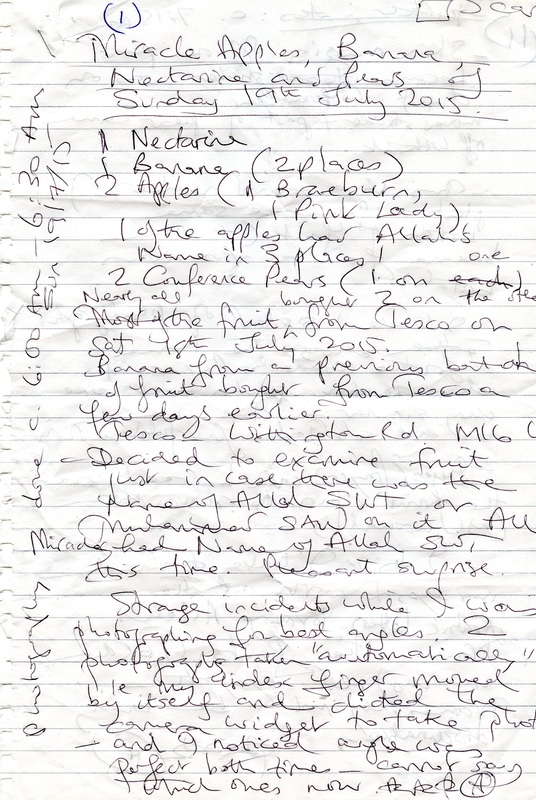 (1)
Scan
Miracle Apples, Banana,
Nectarine and Pears of
Sunday 19th July 2015.
1 Nectarine
1 Banana (2 places)
2 Apples (1 Braeburn,
1 Pink Lady)
1 of the apples has Allah's
Name in 3 places!
2 Conference Pears (1 on each one
Nearly all bought 2 on the other
Most of the fruit, from Tesco on
Sat 18th July 2015.
Banana from a previous batch
of fruit bought from Tesco a
few days earlier.
Tesco Withington Rd. M16
- Decided to examine fruit
just in case there was the
Name of Allah SWT or
Muhammad SAW on it All
Miracles had Name of Allah SWT
this time. Pleasant surprise.
Strange incidents while I was
photographing for best angles. 2
photographs taken "automatically"
ie my index finger moved
by itself and clicked the
camera widget to take photo
- and I noticed angle was
perfect both times - cannot say
which ones now. A
Photography done c. 6:00 Am - 6:30 Am
Sun 19/7/15